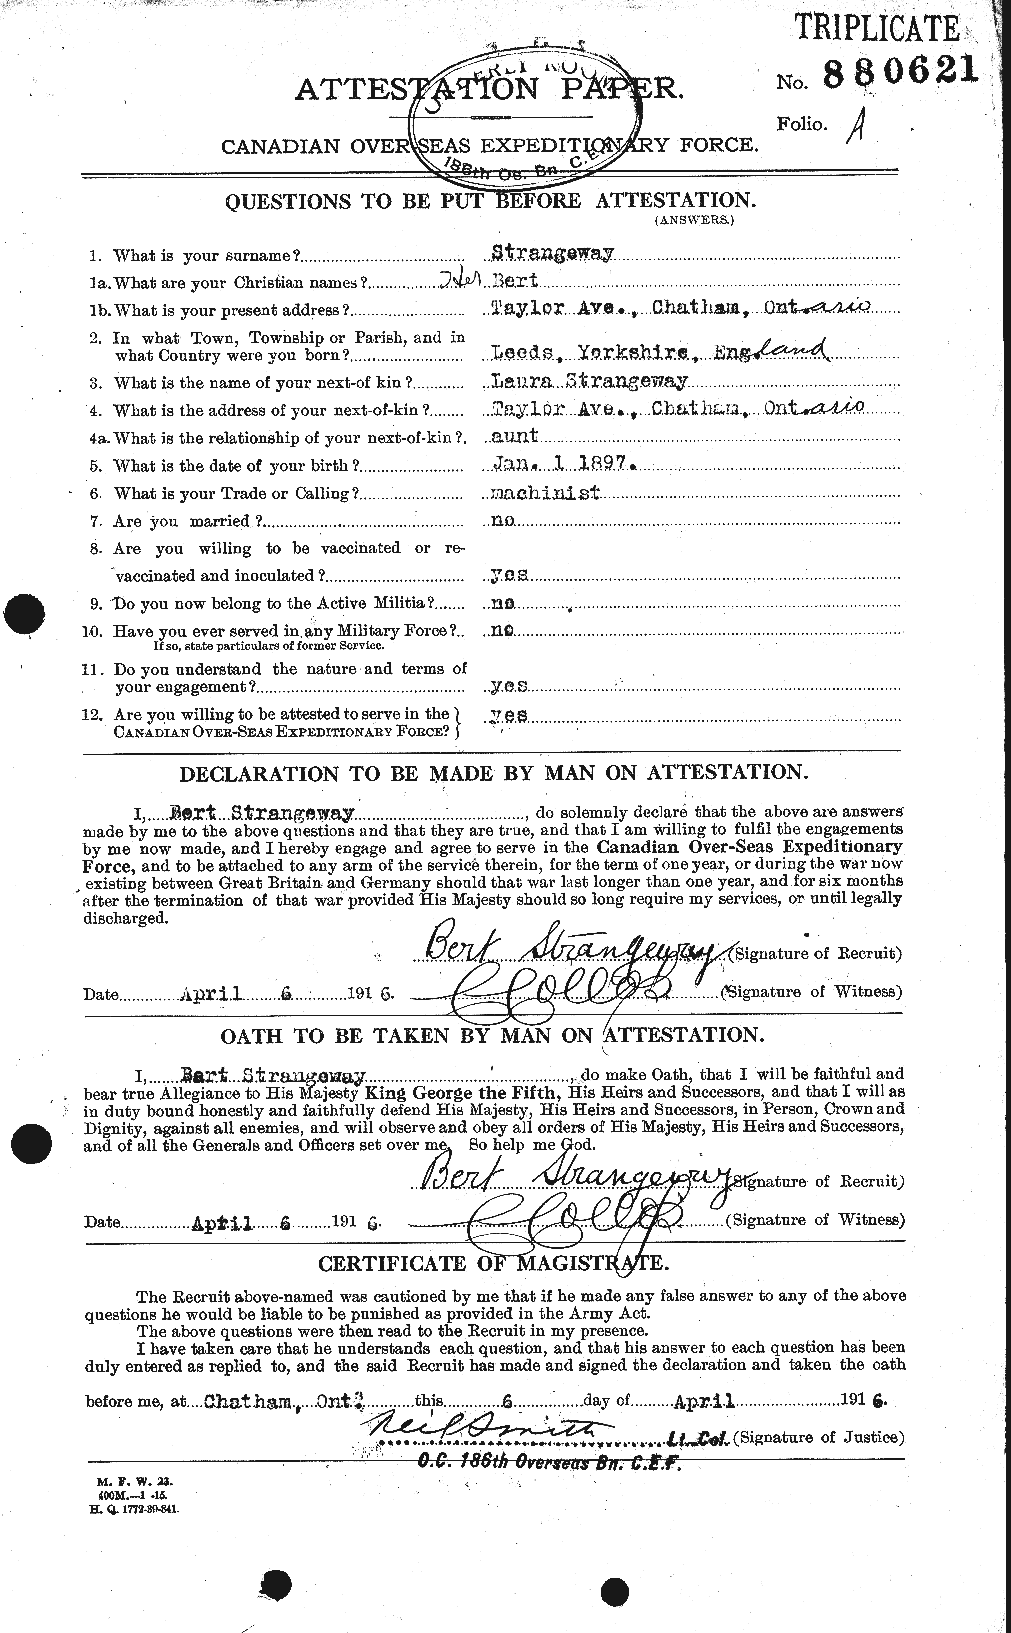 TRIPLICATE
ATTESTATION PAPER.
No. 880621
Folio. A
CANADIAN OVER-SEAS EXPEDITIONARY FORCE.
186th Os. Bn. C.E.F.
QUESTIONS TO BE PUT BEFORE ATTESTATION.
(ANSWERS.)
1. What is your surname? Strangeway
1a. What are your Christian names? Bert
1b. What is your present address? Taylor Ave., Chatham, Ontario
2. In what Town, Township or Parish, and in
what Country were you born? Leeds, Yorkshire, England
3. What is the name of your next-of kin? Laura Strangeway
4. What is the address of your next-of-kin? Taylor Ave., Chatham, Ontario
4a. What is the relationship of your next-of-kin? aunt
5. What is the date of your birth? Jan. 1 1897.
6. What is your Trade or Calling? machinist
7. Are you married? no
8. Are you willing to be vaccinated or re-
vaccinated and inoculated? yes
9. Do you now belong to the Active Militia? no
10. Have you ever served in any Military Force? no
If so, state particulars of former Service.
11. Do you understand the nature and terms of
your engagement? yes
12. Are you willing to be attested to serve in the } yes
CANADIAN OVER-SEAS EXPEDITIONARY FORCE? }
DECLARATION TO BE MADE BY MAN ON ATTESTATION.
I, Bert Strangeway, do solemnly declare that the above are answers
made by me to the above questions and that they are true, and that I am willing to fulfil the engagements
by me now made, and I hereby engage and agree to serve in the Canadian Over-Seas Expeditionary
Force, and to be attached to any arm of the service therein, for the term of one year, or during the war now
existing between Great Britain and Germany should that war last longer than one year, and for six months
after the termination of that war provided His Majesty should so long require my services, or until legally
discharged.
Bert Strangeway (Signature of Recruit)
Date April 6 1916. (Signature of Witness)
OATH TO BE TAKEN BY MAN ON ATTESTATION.
I, Bert Strangeway, do make Oath, that I will be faithful and
bear true Allegiance to His Majesty King George the Fifth, His Heirs and Successors, and that I will as
in duty bound honestly and faithfully defend His Majesty, His Heirs and Successors, in Person, Crown and
Dignity, against all enemies, and will observe and obey all orders of His Majesty, His Heirs and Successors,
and of all the Generals and Officers set over me. So help me God.
Bert Strangeway (Signature of Recruit)
Date April 6 1916. (Signature of Witness)
CERTIFICATE OF MAGISTRATE.
The Recruit above-named was cautioned by me that if he made any false answer to any of the above
questions he would be liable to be punished as provided in the Army Act.
The above questions were then read to the Recruit in my presence.
I have taken care that he understands each question, and that his answer to each question has been
duly entered as replied to, and the said Recruit has made and signed the declaration and taken the oath
before me, at Chatham, Ont. this 6 day of April 1916.
Neil Smith Lt. Col. (Signature of Justice)
O.C. 186th Overseas Bn. C.E.F.
M. F. W. 23.
400M.—1-15.
H. Q. 1772-39-841.